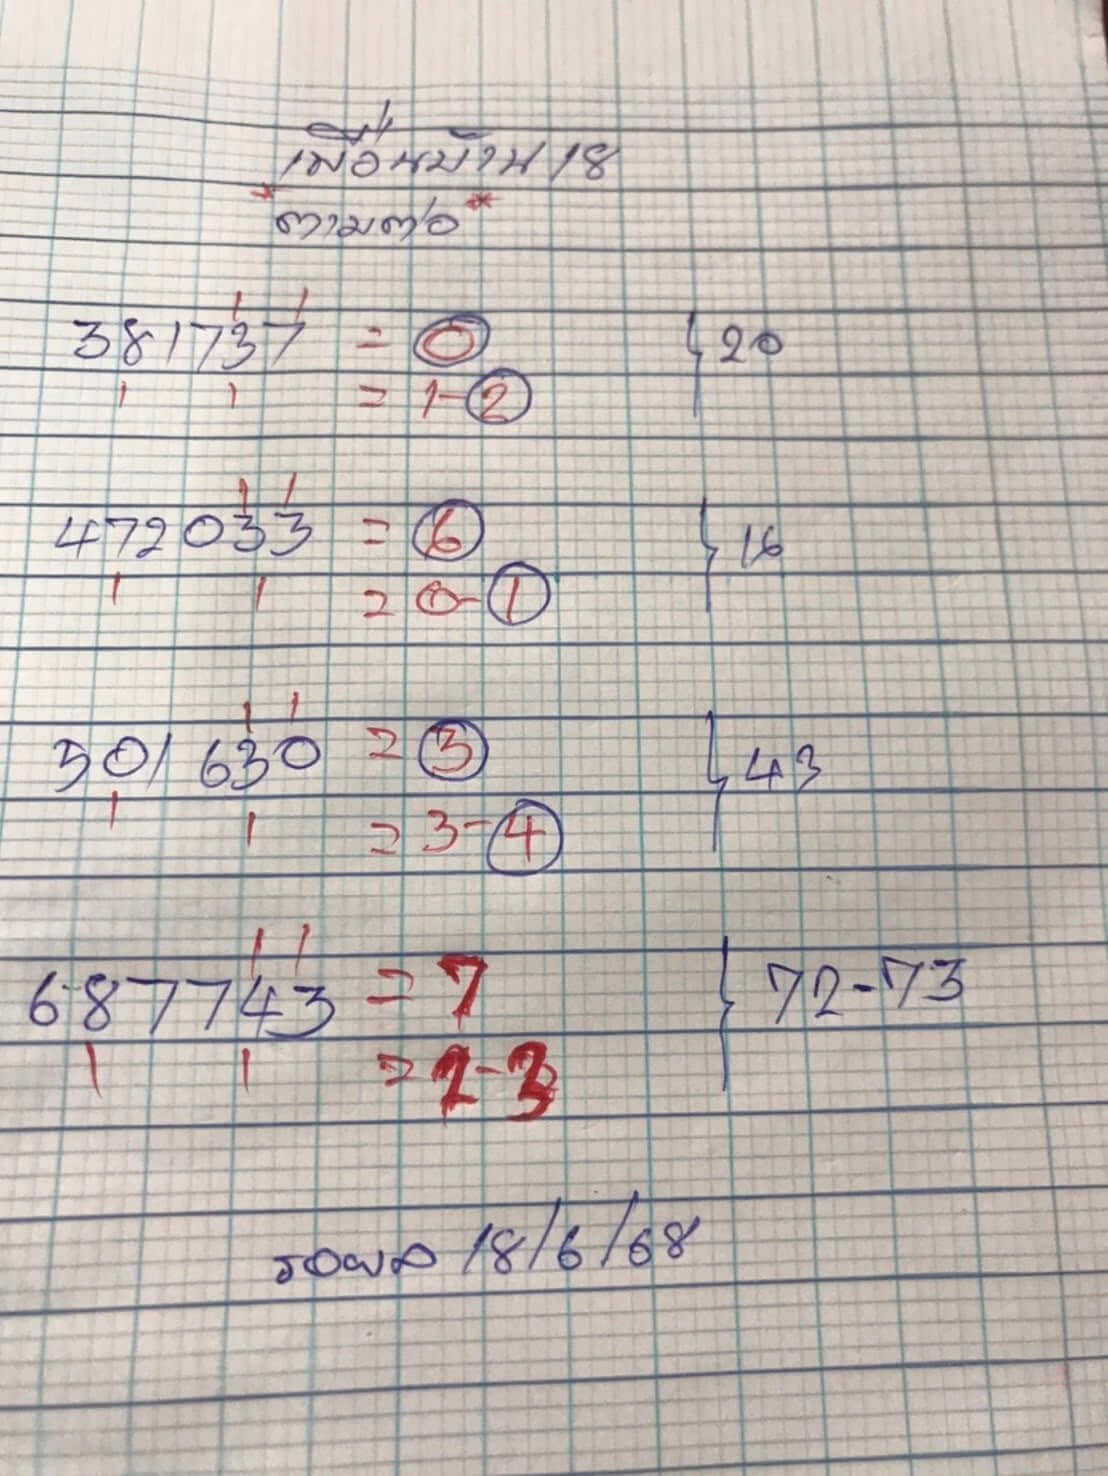 เพื่อนบ้าน 18
*ตามต่อ*
381737 = 0 } 20
= 1-2
472033 = 6 } 16
= 0-1
301630 = 3 } 43
= 3-4
687743 = 7 } 72-73
= 2-3
รอผล 18/6/68